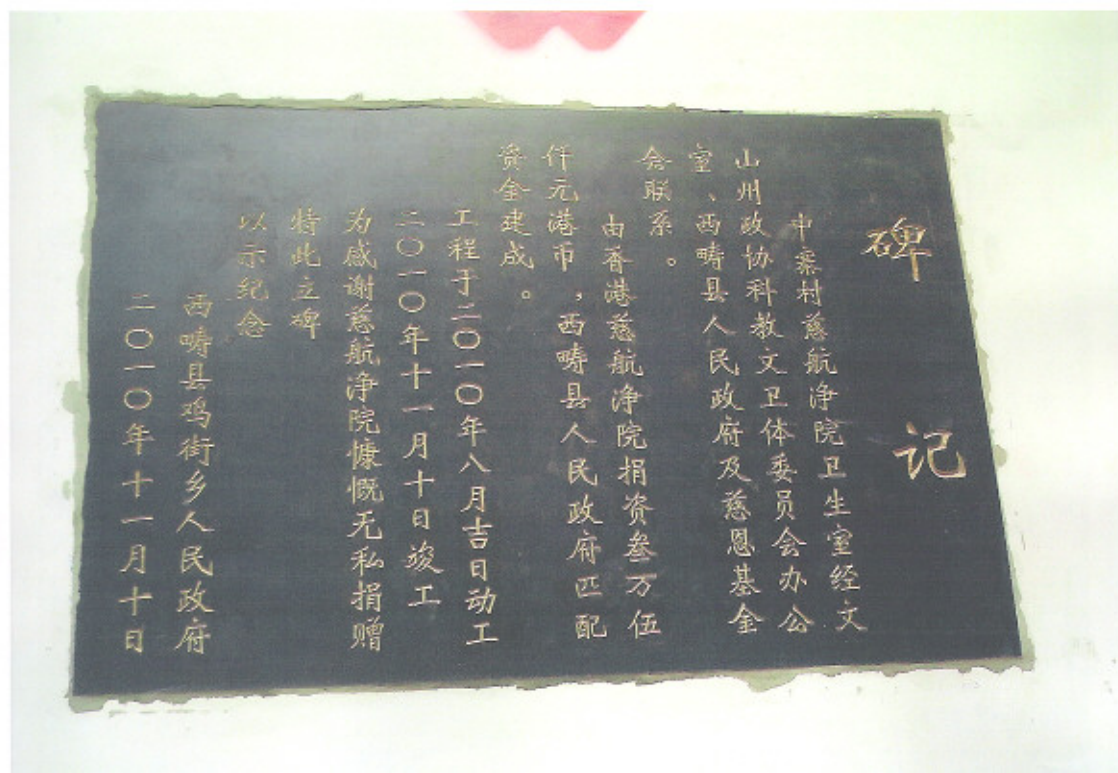 碑记
中寨村慈航净院卫生室经文
山州政协科教文卫体委员会办公
室、西畴县人民政府及慈恩基金
会联系。
由香港慈航净院捐资叁万伍
仟元港币，西畴县人民政府匹配
资金建成。
工程于二〇一〇年八月吉日动工
二〇一〇年十一月十日竣工
为感谢慈航净院慷慨无私捐赠
特此立碑
以示纪念
西畴县鸡街乡人民政府
二〇一〇年十一月十日